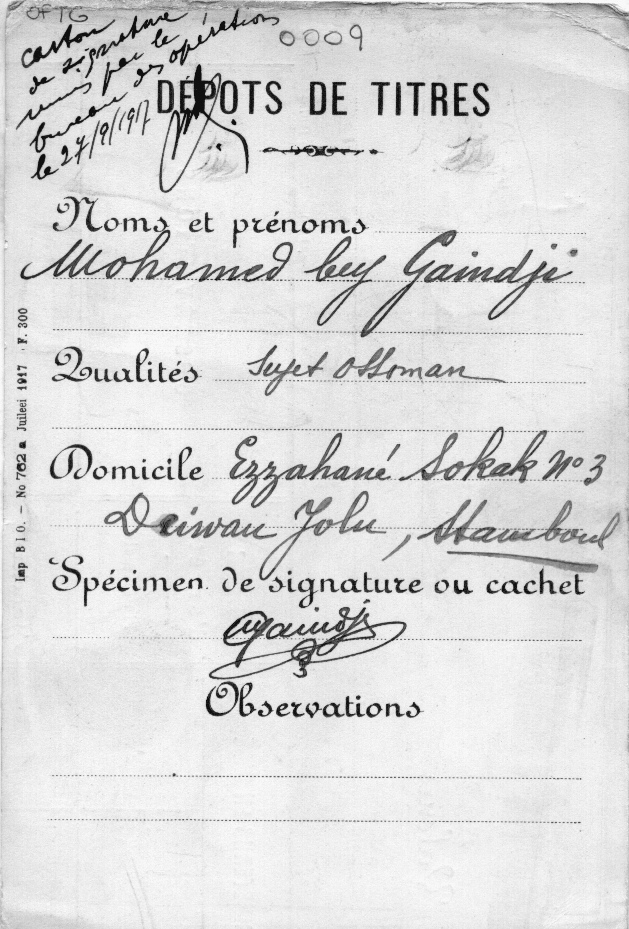 OFTG
0009
carton
de signature
remis par le
bureau des opérations
le 27/9/1917
DÉPOTS DE TITRES
Noms et prénoms
Mohamed bey Gaindji
Qualités Sujet Ottoman
Domicile Ezzahané Sokak No 3
Deiwan Jolu, Stamboul
Spécimen de signature ou cachet
Gaindji
Observations
Imp B I O. – No 762 a Juileei 1917 - F. 300